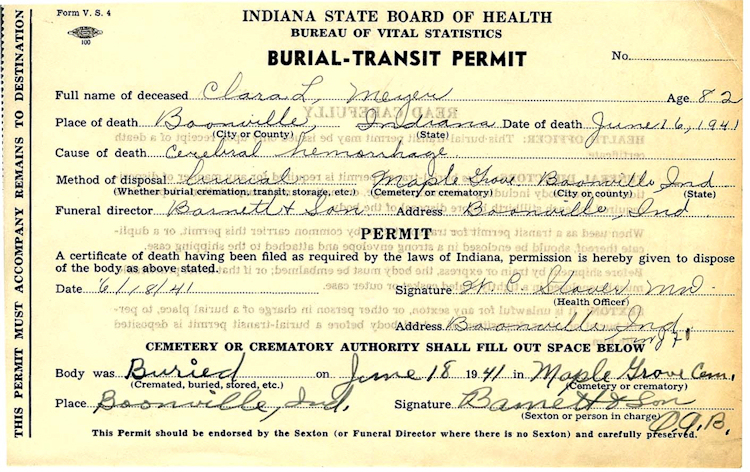 Form V. S. 4
100
INDIANA STATE BOARD OF HEALTH
BUREAU OF VITAL STATISTICS
BURIAL-TRANSIT PERMIT
No.
Full name of deceased Clara L. Meyer Age 82
Place of death Boonville, Indiana Date of death June 16, 1941
(City or County) (State)
Cause of death Cerebral hemorrhage
Method of disposal burial Maple Grove Boonville, Ind
(Whether burial cremation, transit, storage, etc.) (Cemetery or crematory) (City or county) (State)
Funeral director Barnett & Son Address Boonville, Ind.
PERMIT
A certificate of death having been filed as required by the laws of Indiana, permission is hereby given to dispose
of the body as above stated.
Date 6/18/41 Signature Slover MD.
(Health Officer)
Address Boonville Ind.
CEMETERY OR CREMATORY AUTHORITY SHALL FILL OUT SPACE BELOW
Body was Buried on June 18 1941 in Maple Grove Cem.
(Cremated, buried, stored, etc.) (Cemetery or crematory)
Place Boonville, Ind. Signature Barnett & Son
(Sexton or person in charge) O.A.B.
This Permit should be endorsed by the Sexton (or Funeral Director where there is no Sexton) and carefully preserved.
THIS PERMIT MUST ACCOMPANY REMAINS TO DESTINATION